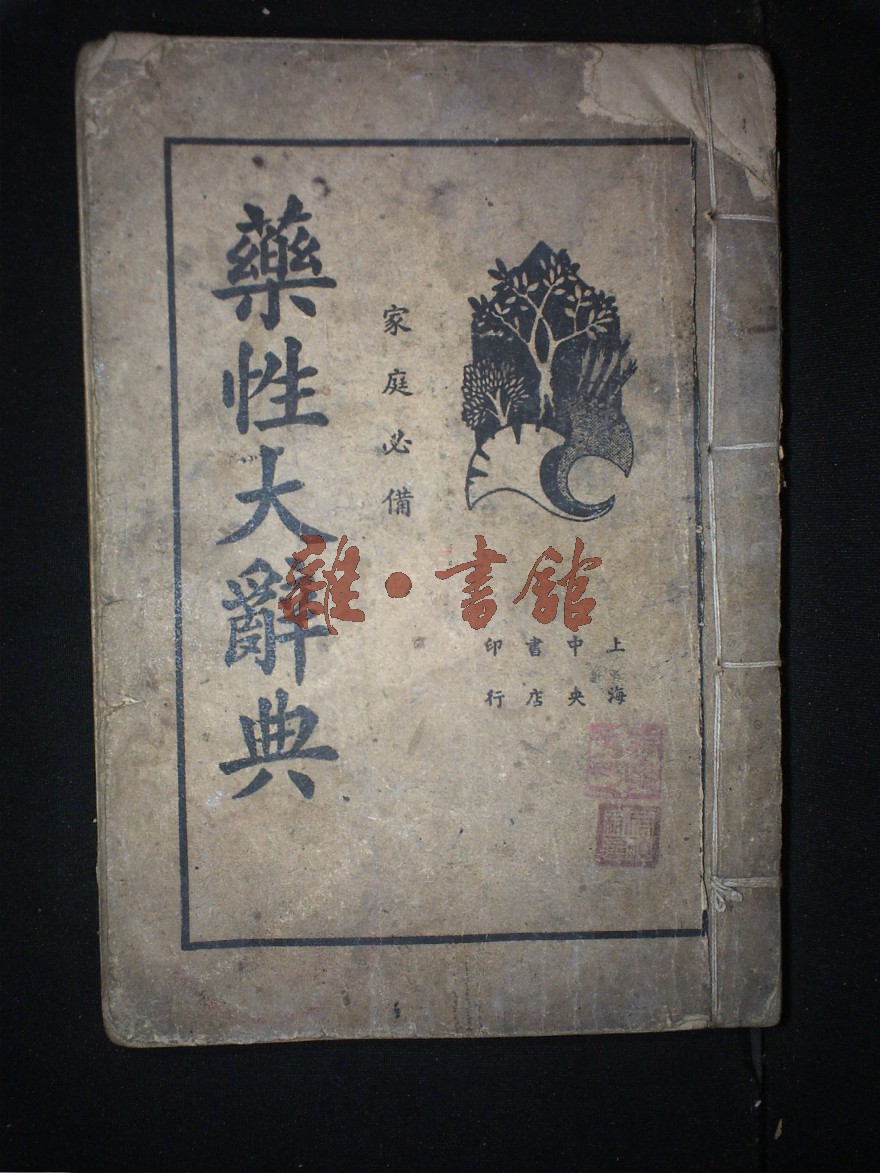 上海
中央
書店
印行
家庭必備
藥性大辭典
雜·書舘